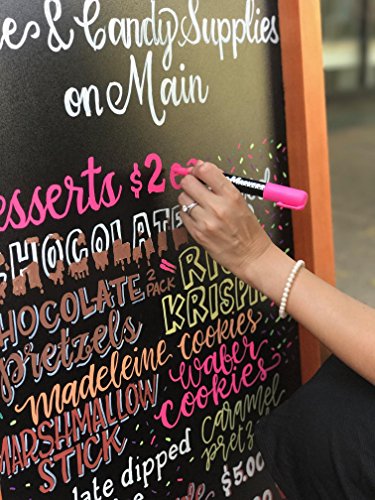 e & Candy Supplies
on Main
esserts $2
CHOCOLATE
CHOCOLATE 2 PACK
pretzels
RICE
KRISPI
Madeleine Cookies
MARSHMALLOW
STICK
wafer
cookies
caramel
pretz
late dipped
$5.00